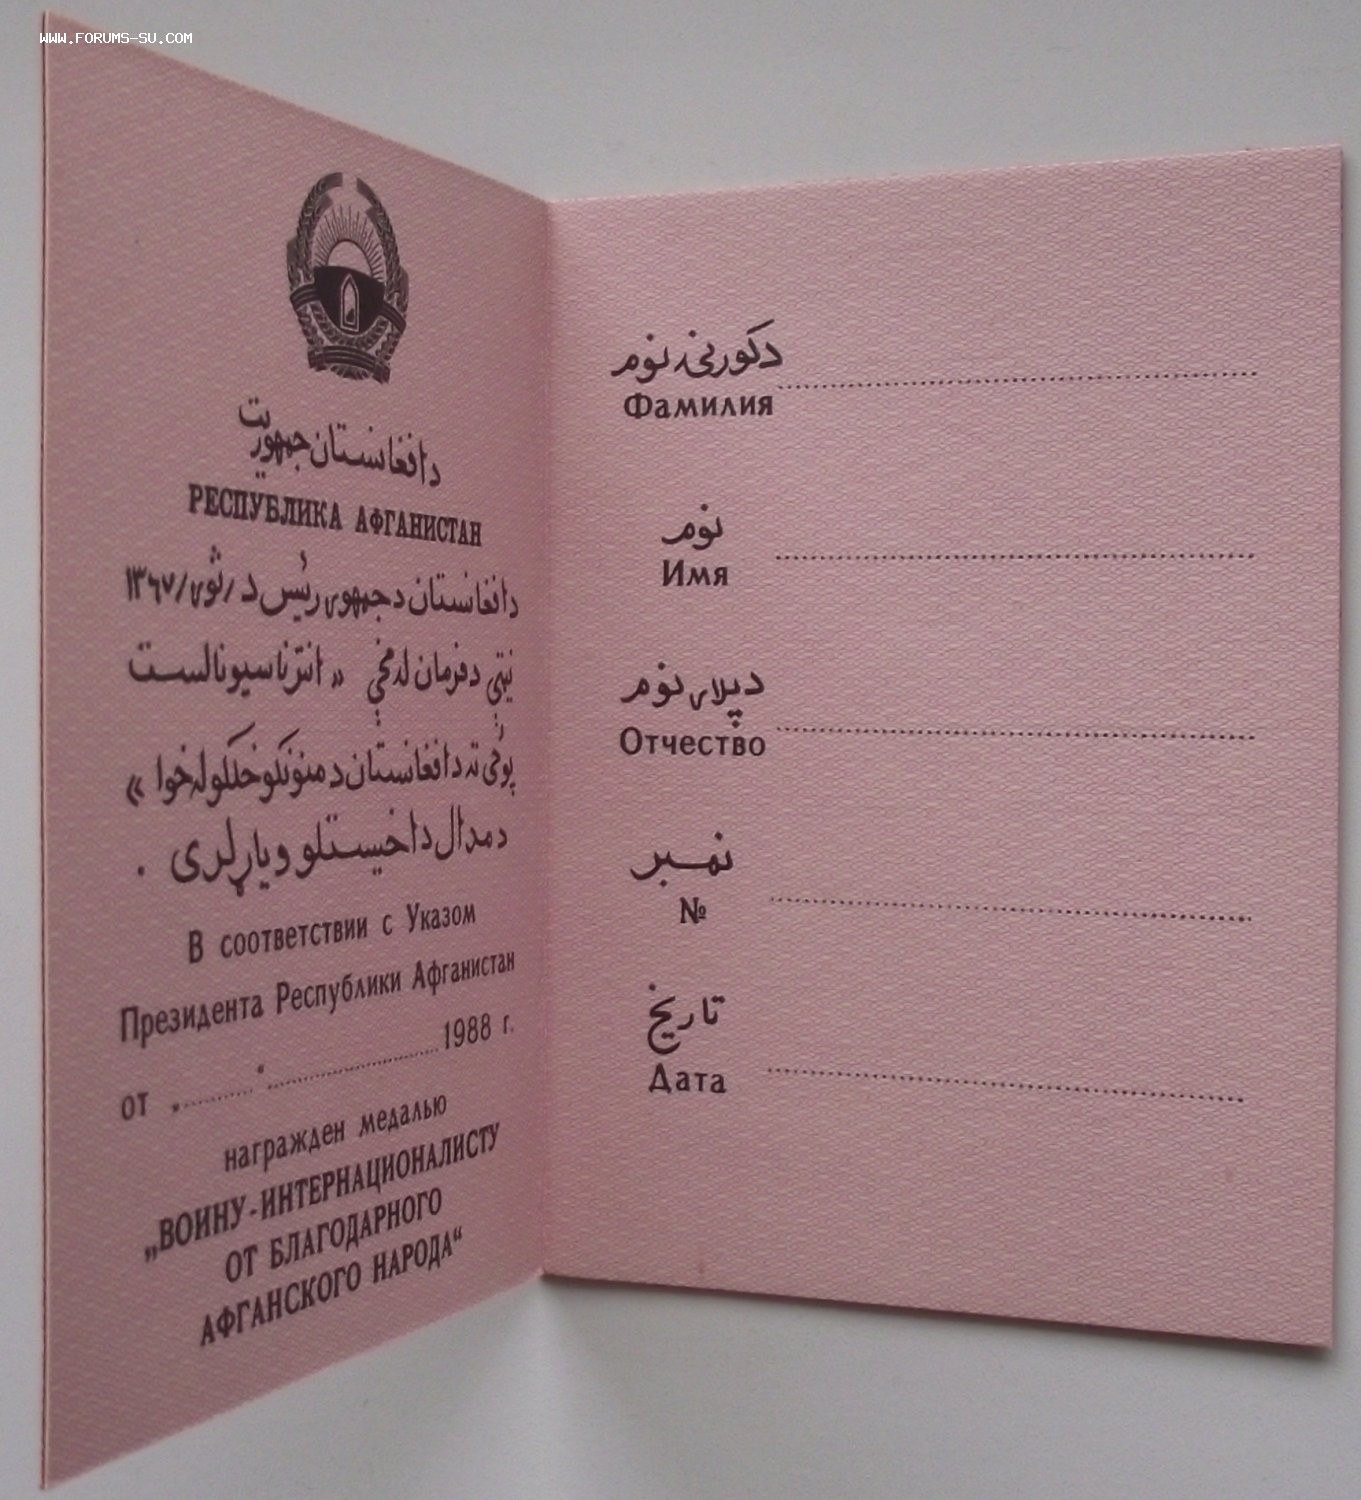 WWW.FORUMS-SU.COM
دافغانستان جمهوریت
РЕСПУБЛИКА АФГАНИСТАН
دافغانستان دجمهوری رئیس د /ثور/ ۱۳۶۷
نیټې دفرمان له مخې « انترناسیونالست
پوځی ته دافغانستان د مننونکو خلکو له خوا »
د مدال داخیستلو ویاړ لری .
В соответствии с Указом
Президента Республики Афганистан
от „..........“.........................1988 г.
награжден медалью
„ВОИНУ-ИНТЕРНАЦИОНАЛИСТУ
ОТ БЛАГОДАРНОГО
АФГАНСКОГО НАРОДА“
دکورنۍ نوم
Фамилия
نوم
Имя
دپلار نوم
Отчество
نمبر
№
تاریخ
Дата